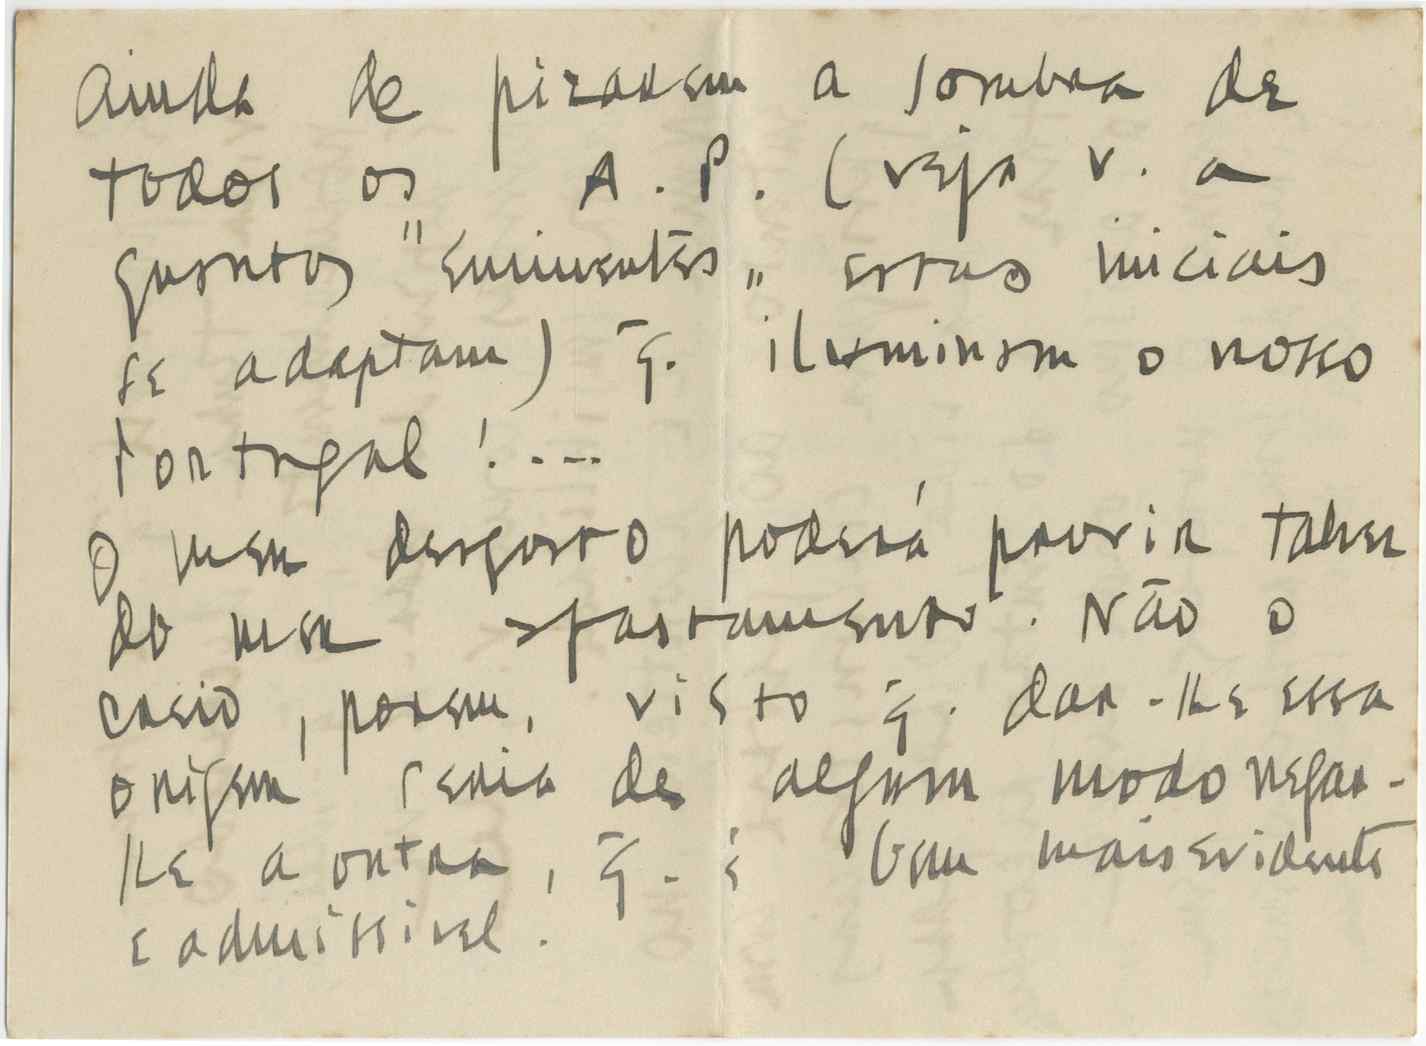 ainda de pizarem a sombra de
todos os A. P. (veja v. a
quantos "eminentes„ estas iniciais
se adaptam) q̃. iluminam o nosso
Portugal!....
O meu desgosto poderá provir talvez
do meu afastamento. Não o
creio, porem, visto q̃. dar-lhe essa
origem seria de algum modo negar-
lhe a outra, q̃. é bem mais evidente
e admissivel.